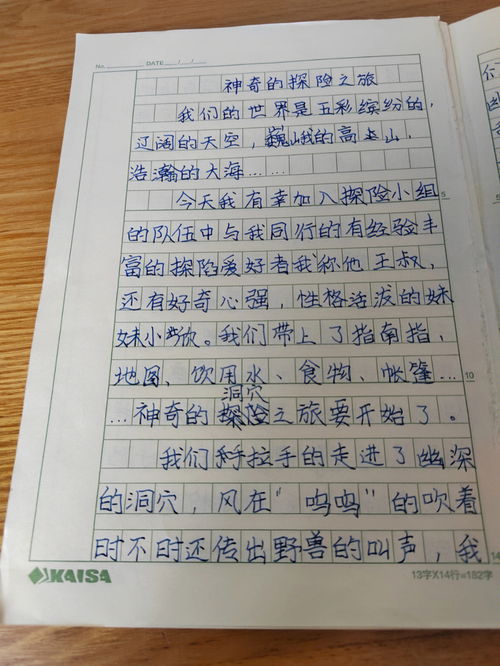 No. DATE / /
神奇的探险之旅
我们的世界是五彩缤纷的，
辽阔的天空，巍峨的高山，
浩瀚的大海……
今天我有幸加入探险小组
的队伍中与我同行的有经验丰
富的探险爱好者我称他王叔，
还有好奇心强，性格活泼的妹
妹小欣。我们带上了指南指，
地图、饮用水、食物、帐篷…
洞穴
…神奇的探险之旅要开始了。
我们手拉手的走进了幽深
的洞穴，风在“呜呜”的吹着
时不时还传出野兽的叫声，我
5
10
14
KAISA
13字X14行=182字